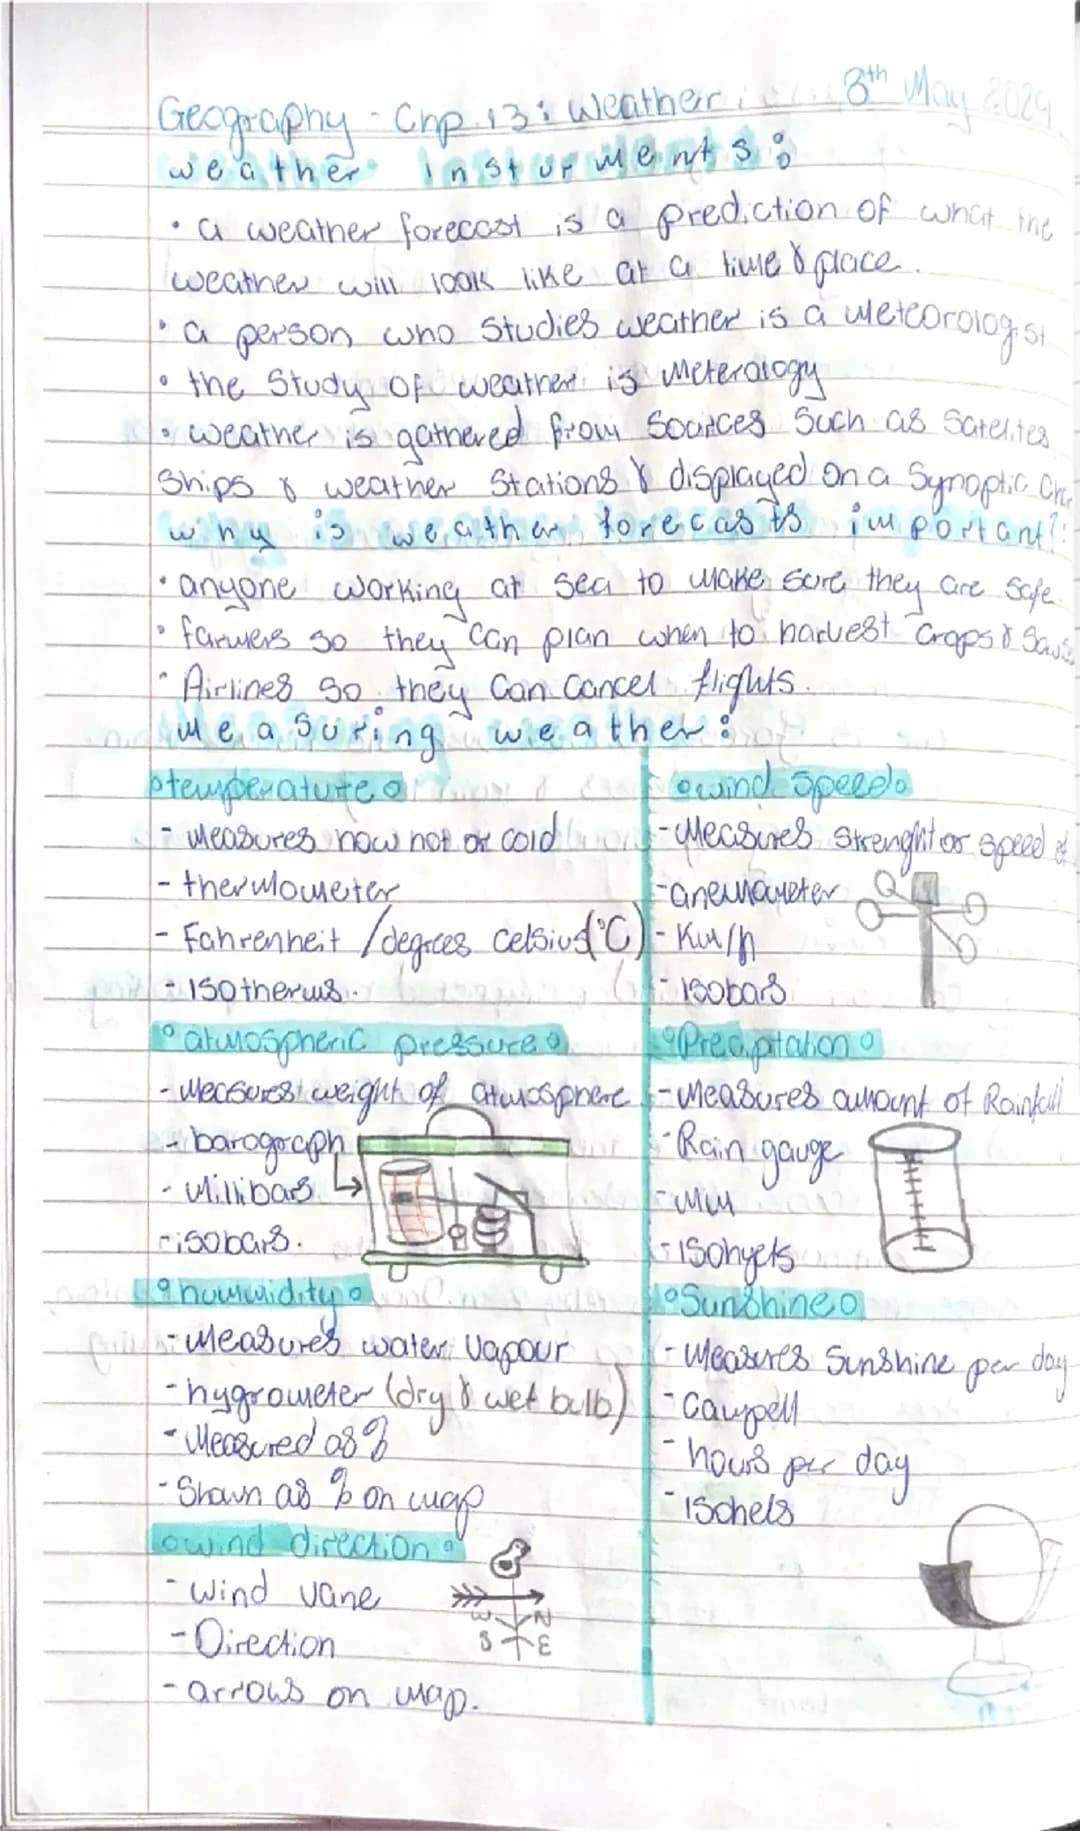 Geography - Chp.13: Weather 8th May 2024
weather insturments:
• a weather forecast is a prediction of what the
weather will look like at a time & place.
• a person who studies weather is a Meteorologist
• the study of weather is Meterology
• weather is gathered from sources such as Satelites
Ships & weather Stations & displayed on a Synoptic
why is weather forecasts important?:
• anyone working at sea to make sure they are safe.
• farmers so they can plan when to harvest crops &
• Airlines so they can cancel flights.
Measuring weather:
temperature
- Measures how hot or cold
- thermometer
- Fahrenheit /degrees celsius (°C)
- Isotherms.
atmospheric pressure
- Measures weight of atmosphere
- barograph
- Millibars
- isobars.
humidity
- Measures water vapour
- hygrometer (dry & wet bulb)
- Measured as %
- Shown as % on map
wind direction
- wind vane
- Direction
- arrows on map.
W N
S E
wind speed
- Measures strenght or speed of
- anemometer
- Km/h
- Isobars
Precipitation
- Measures amount of Rainfall
- Rain gauge
- MM
- Isohyets
Sunshine
- Measures Sunshine per day
- Campell
- hours per day
- Isohels